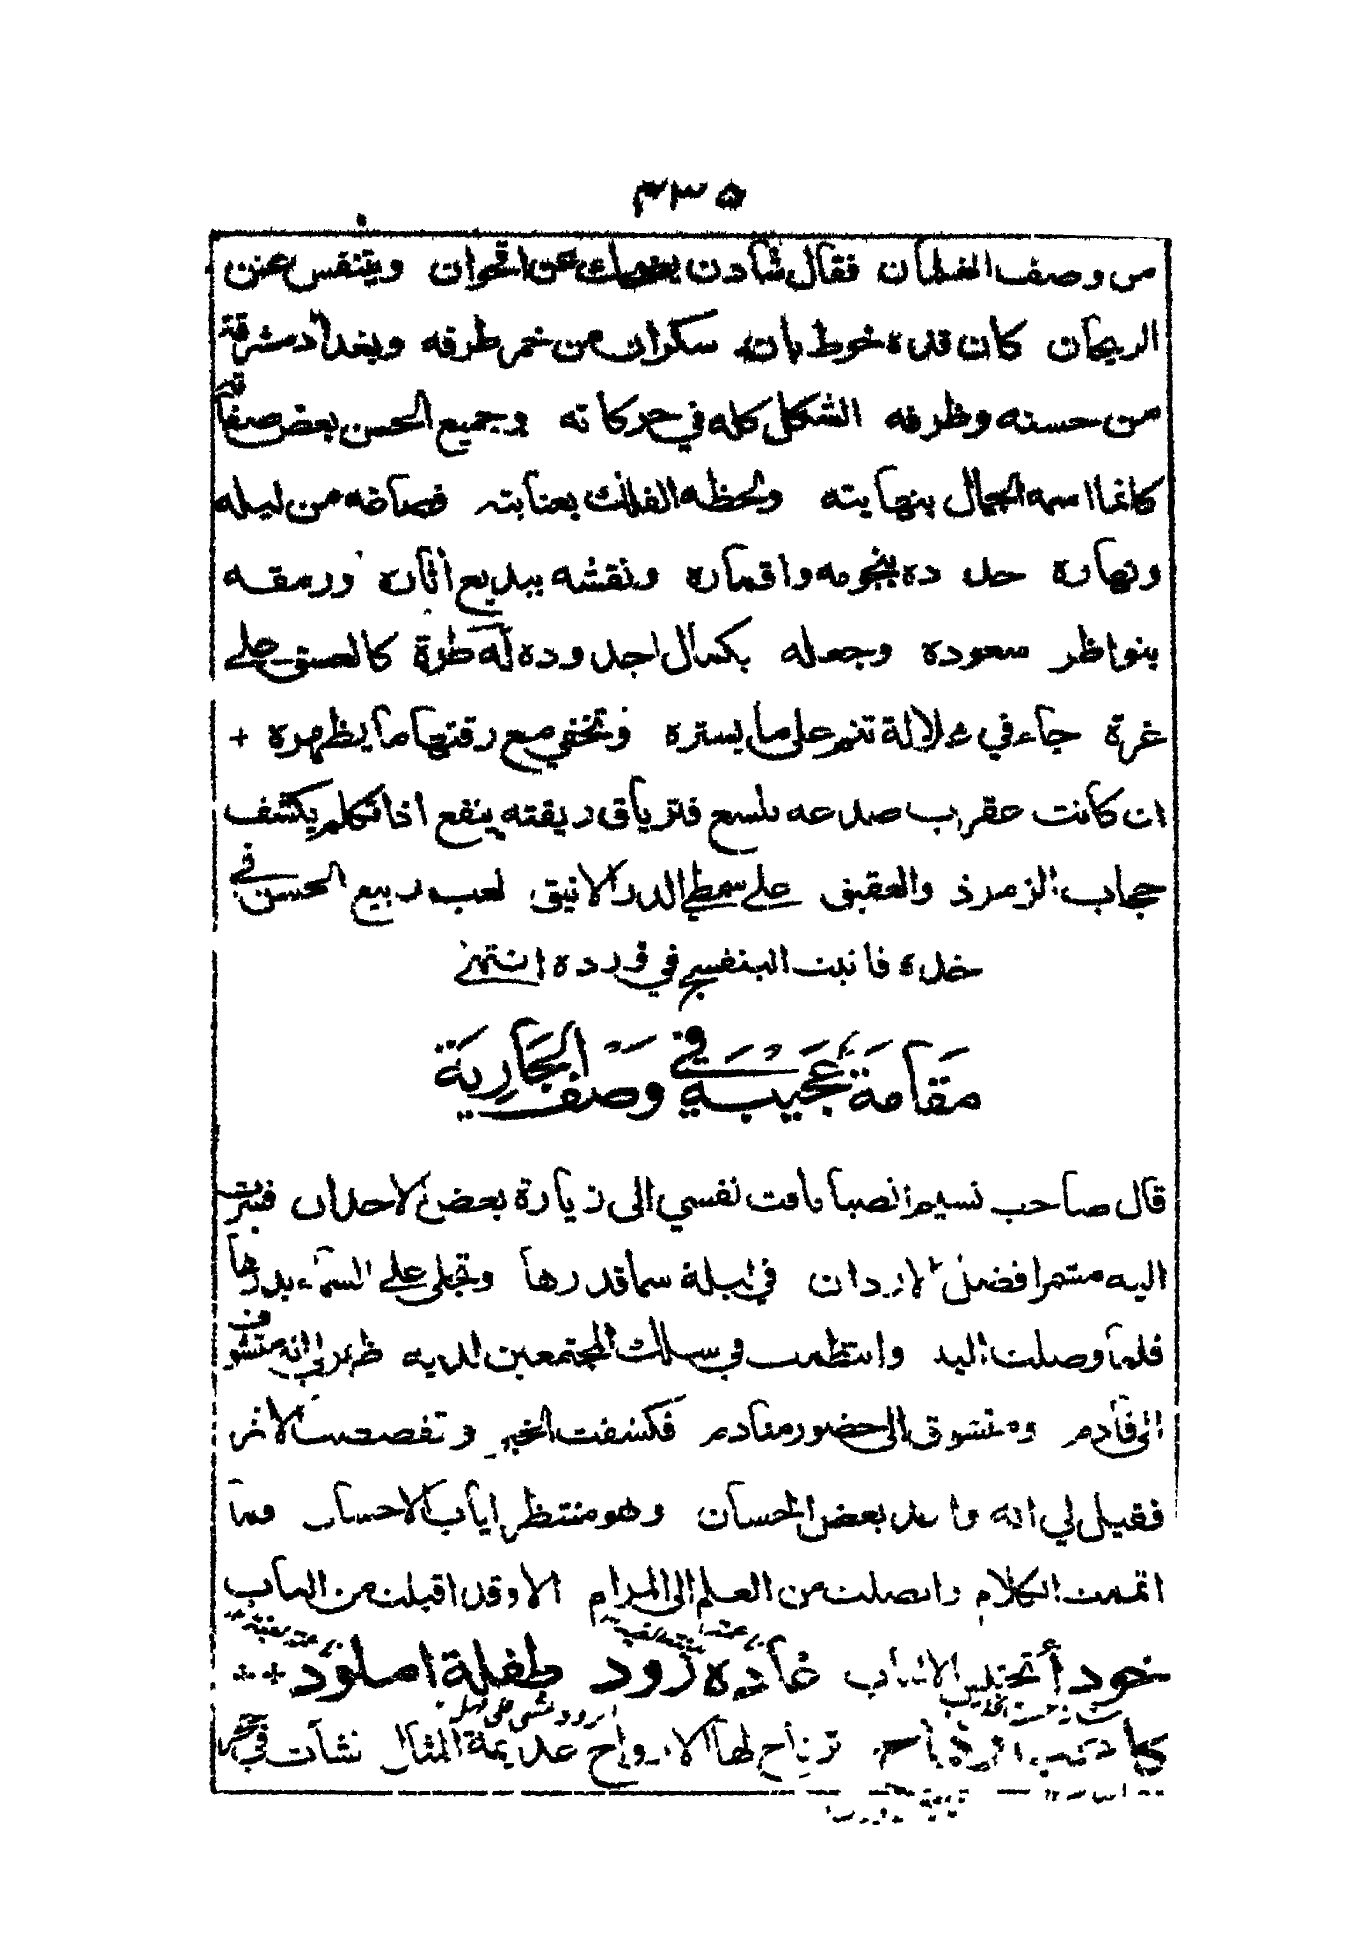 ٣٣٥
من وصف الغلمان فقال شادن يضحك عن اقحوان ويتنفس عن
الريحان كان قده خوط بان سكران من خمر طرفه وبغداد مشرقة
من حسنه وظرفه الشكل كله في حركاته وجميع الحسن بعض صفاته
كانما اسمه الجمال بنهايته ولحظه الفلك بعنايته فصاغه من ليله
ونهاره حلاه بنجومه واقماره ونقشه ببديع اثاره ورمقه
بنواظر سعوده وجعله بكمال احد وده له طرة كالغسق على
غرة جاء في غلالة تنم على ما يستره وتخفي مع رقتها ما يظهره +
ان كانت عقرب صدغه تلسع فترياق ريقته ينفع اذا تكلم يكشف
حجاب الزمرذ والعقيق على سمط الدر الانيق لعب ربيع الحسن في
خده فانبت البنفسج في ورده انتهى
مقامة عجيبة في وصف الجارية
قال صاحب نسيم الصبا تاقت نفسي الى زيارة بعض الاخدان فسرت
اليه مشمرا فضل الاردان في ليلة سما قدرها وتجلى على السماء بدرها
فلما وصلت اليه وانتظمت في سلك المجتمعين لديه ظهر لي انه متشوف
الى قادم ومتشوق الى حضور منادم فكشفت الخبر وتفحصت الاثر
فقيل لي انه واعد بعض الحسان وهو منتظر اياب الاحسان وما
اتممت الكلام واتصلت من العلم الى المرام الا وقد اقبلت من الباب
خود تختلس الالباب غادة رود طفلة املود
ترتاح لها الارواح عديمة المثال نشأت في حجر